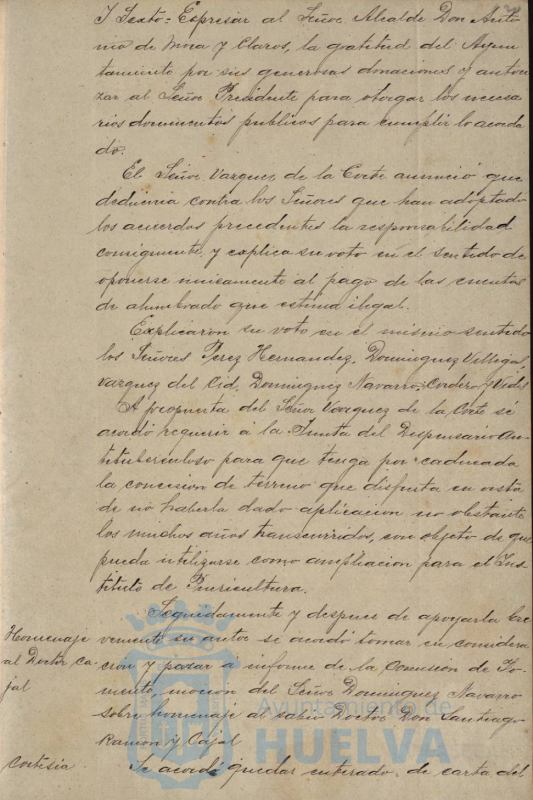 Y Sexto= Espresar al Señor Alcalde Don Anto
nio de Mora y Claros, la gratitud del Ayun
tamiento por sus generosas donaciones y autori
zar al Señor Presidente para otorgar los necesa
rios documentos publicos para cumplir lo acorda
do.
El Señor Vazquez de la Corte anunció que
deduciria contra los Señores que han adoptado
los acuerdos precedentes la responsabilidad
consiguiente y explica su voto en el sentido de
oponerse unicamente al pago de las cuentas
de alumbrado que estima ilegal.
Explicaron su voto en el mismo sentido
los Señores Perez Hernandez, Dominguez Villegas,
Vazquez del Cid, Dominguez Navarro, Cordero y Vides
A propuesta del Señor Vazquez de la Corte se
acordó requerir á la Junta del Dispensario An-
tituberculoso para que tenga por caducada
la concesion de terreno que disfruta en vista
de no haberla dado aplicacion no obstante
los muchos años transcurridos, con objeto de que
pueda utilizarse como ampliacion para el Ins-
tituto de Puericultura.
Homenaje
al Doctor Ca-
jal
Seguidamente y despues de apoyarla bre
vemente su autor se acordó tomar en considera
cion y pasar á informe de la Comision de Fo-
mento, mocion del Señor Dominguez Navarro
sobre homenaje al sabio Doctor Don Santiago
Ramon y Cajal
Cortesia.
Se acordó quedar enterado de carta del
Ayuntamiento de
HUELVA